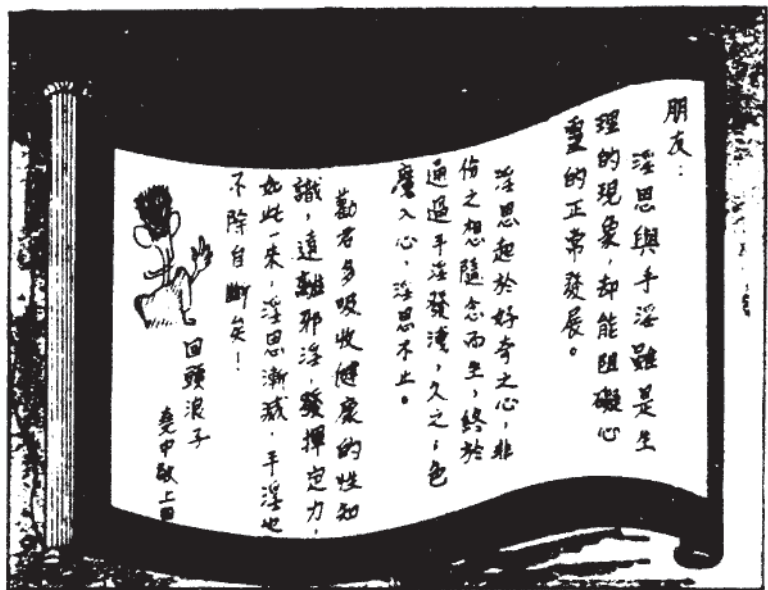 朋友：
淫思與手淫雖是生
理的現象，却能阻礙心
靈的正常發展。
淫思起於好奇之心，非
份之想隨念而生，終於
通過手淫發洩，久之，色
魔入心，淫思不止。
勸君多吸收健康的性知
識，遠離邪淫，發揮定力，
如此一來，淫思漸滅，手淫也
不除自斷矣！
回頭浪子
中敬上